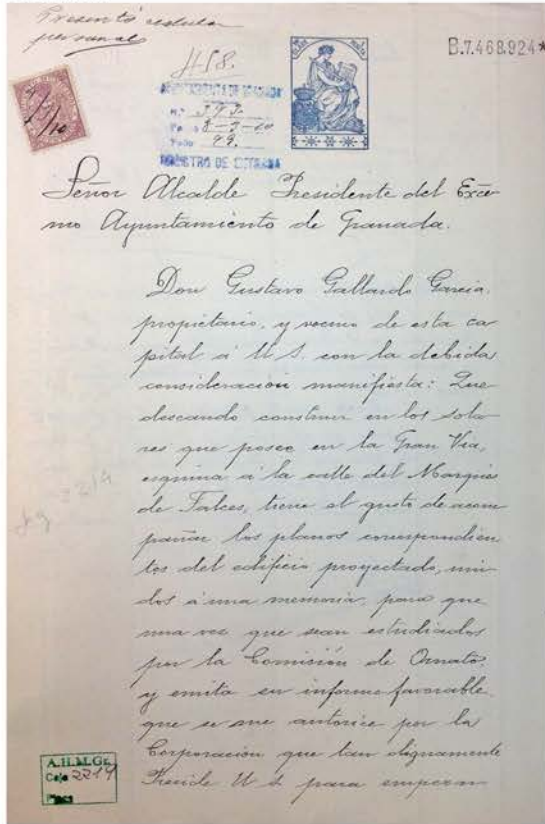 Presentó cedula
personal
458.
B.7.468.924*
AYUNTAMIENTO DE GRANADA
N.º 393
8-3-10
Folio 99.
REGISTRO DE ENTRADA
1/10
Señor Alcalde Presidente del Excē
mo Ayuntamiento de Granada.
Don Gustavo Gallardo Garcia,
propietario, y vecino de esta ca
pital á U S. con la debida
consideracion manifiesta: Que
deseando construir en los sola
res que posee en la Gran Via,
esquina á la calle del Marqués
de Falces, tiene el gusto de acom
pañar los planos correspondien
tes del edificio proyectado, uni
dos á una memoria, para que
una vez que sean estudiados
por la Comisión de Ornato,
y emita su informe favorable
que se me autorice por la
Corporacion que tan dignamente
Preside U S para empezar
2214
A.H.M.Gr.
Caja 2214
Pieza